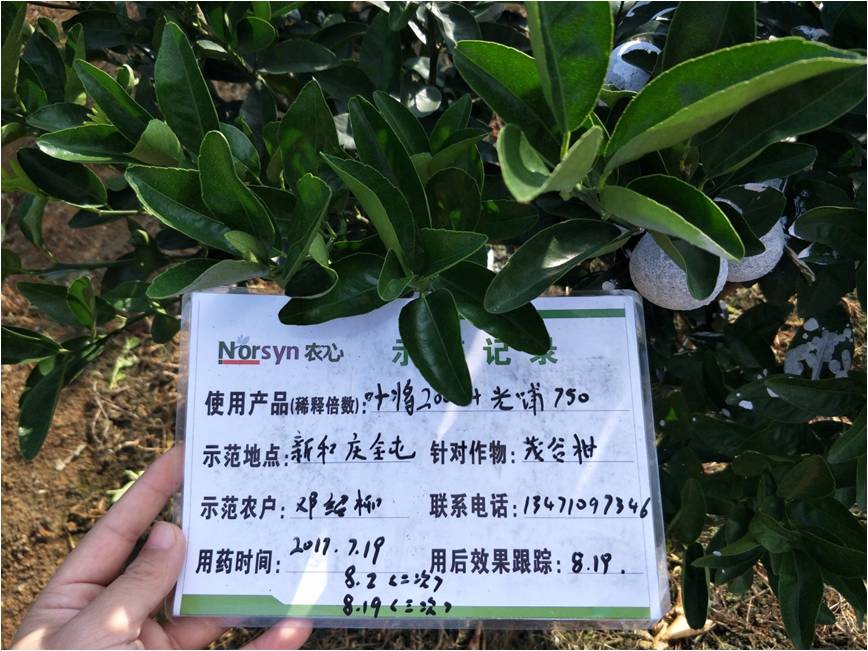 Norsyn 农心 示 记录
使用产品(稀释倍数):叶将200 + 光哺 750
示范地点:新和庆全屯 针对作物:茂谷柑
示范农户:邓绍柳 联系电话:13471097346
用药时间:2017.7.19 用后效果跟踪:8.19.
8.2(二次)
8.19(三次)